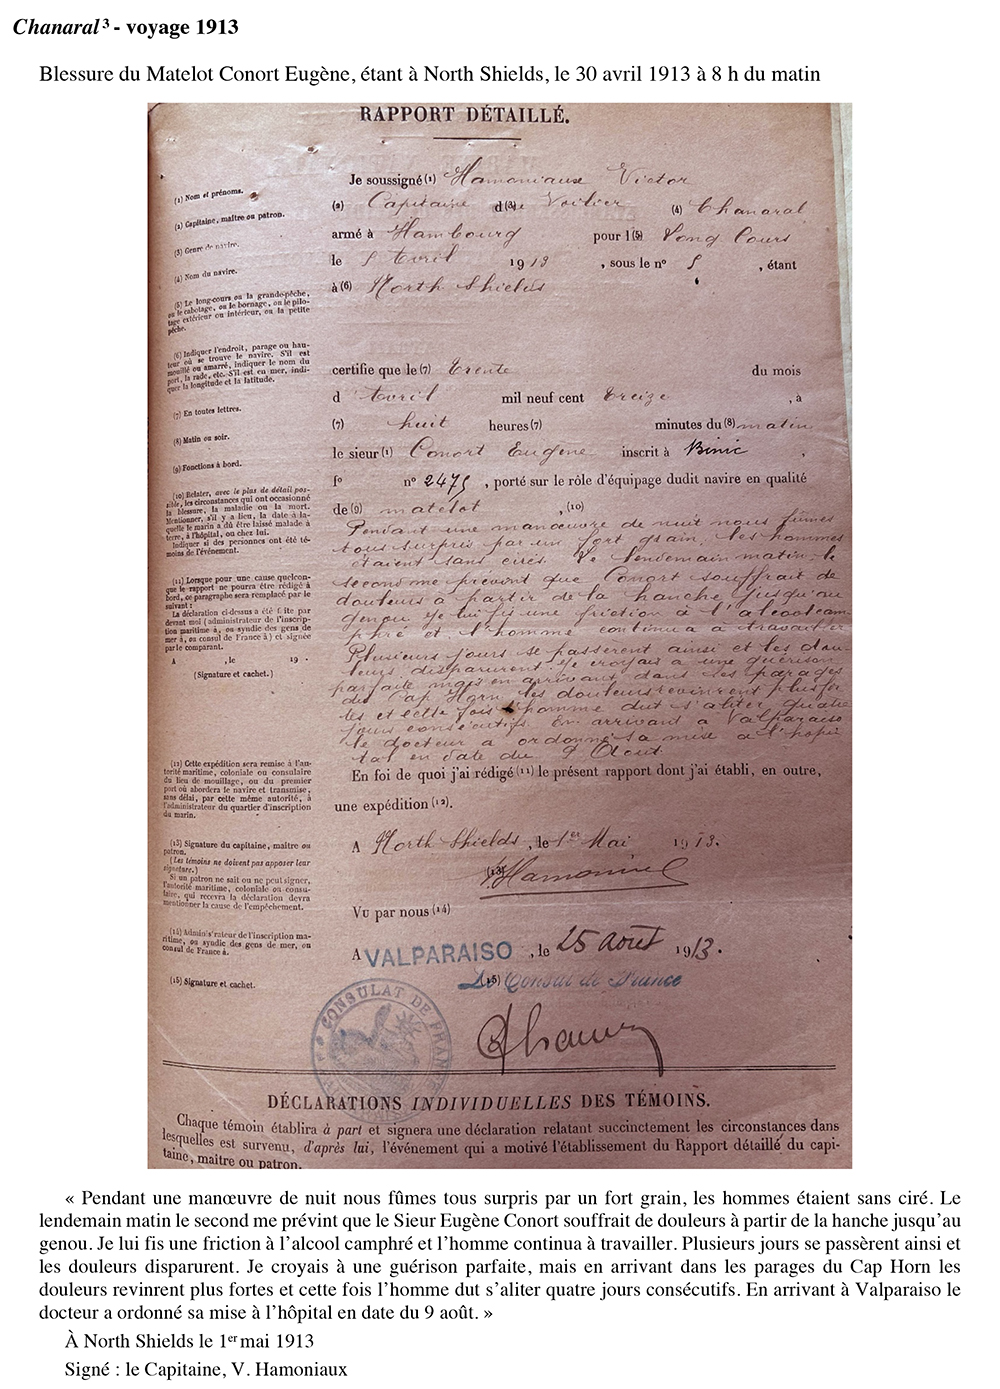 Chanaral³ - voyage 1913
Blessure du Matelot Conort Eugène, étant à North Shields, le 30 avril 1913 à 8 h du matin
RAPPORT DÉTAILLÉ.
Je soussigné (1) Hamoniaux Victor
(2) Capitaine d(3)u Voilier (4) Chanaral
armé à Hambourg pour l(5) Long Cours
le 5 Avril 1913, sous le n° 5, étant
à (6) North Shields
certifie que le (7) trente du mois
d Avril mil neuf cent treize, à
(7) huit heures (7) minutes du (8) matin
le sieur (1) Conort Eugène inscrit à Binic,
f° n° 2475, porté sur le rôle d'équipage dudit navire en qualité
de (9) matelot, (10)
Pendant une manœuvre de nuit nous fûmes
tous surpris par un fort grain, les hommes
étaient sans cirés. Le lendemain matin, le
second me prévint que Conort souffrait de
douleurs à partir de la hanche jusqu'au
genou. Je lui fis une friction à l'alcool cam
phré et l'homme continua à travailler
Plusieurs jours se passèrent ainsi et les dou
leurs disparurent. Je croyais à une guérison
parfaite mais en arrivant dans les parages
du Cap Horn les douleurs revinrent plus for
tes et cette fois l'homme dut s'aliter quatre
jours consécutifs. En arrivant à Valparaiso
le docteur a ordonné sa mise à l'hôpi
tal en date du 9 Août.
En foi de quoi j'ai rédigé (11) le présent rapport dont j'ai établi, en outre,
une expédition (12).
A North Shields, le 1er Mai 1913.
(13) Hamoniaux
Vu par nous (14)
A VALPARAISO, le 25 août 1913.
(15) Le Consul de France
CONSULAT DE FRANCE
(1) Nom et prénoms.
(2) Capitaine, maître ou patron.
(3) Genre de navire.
(4) Nom du navire.
(5) Le long-cours ou la grande-pêche,
ou le cabotage, ou le bornage, ou le pilo-
tage extérieur ou intérieur, ou la petite
pêche.
(6) Indiquer l'endroit, parage ou hau-
teur où se trouve le navire. S'il est
mouillé ou amarré, indiquer le nom du
port, la rade, etc. S'il est en mer, indi-
quer la longitude et la latitude.
(7) En toutes lettres.
(8) Matin ou soir.
(9) Fonctions à bord.
(10) Relater, avec le plus de détail pos-
sible, les circonstances qui ont occasionné
la blessure, la maladie ou la mort.
Mentionner, s'il y a lieu, la date à la-
quelle le marin a dû être laissé malade à
terre, à l'hôpital, ou chez lui.
Indiquer si des personnes ont été té-
moins de l'événement.
(11) Lorsque pour une cause quelcon-
que le rapport ne pourra être rédigé à
bord, ce paragraphe sera remplacé par le
suivant :
La déclaration ci-dessus a été faite par
devant moi (administrateur de l'inscrip-
tion maritime à, ou syndic des gens de
mer à, ou consul de France à) et signée
par le comparant.
A , le 19 .
(Signature et cachet.)
(12) Cette expédition sera remise à l'au-
torité maritime, coloniale ou consulaire
du lieu de mouillage, ou du premier
port où abordera le navire et transmise,
sans délai, par cette même autorité, à
l'administrateur du quartier d'inscription
du marin.
(13) Signature du capitaine, maître ou
patron.
(Les témoins ne doivent pas apposer leur
signature.)
Si un patron ne sait ou ne peut signer,
l'autorité maritime, coloniale ou consu-
laire, qui recevra la déclaration devra
mentionner la cause de l'empêchement.
(14) Administrateur de l'inscription ma-
ritime, ou syndic des gens de mer, ou
consul de France à.
(15) Signature et cachet.
DÉCLARATIONS INDIVIDUELLES DES TÉMOINS.
Chaque témoin établira à part et signera une déclaration relatant succinctement les circonstances dans
lesquelles est survenu, d'après lui, l'événement qui a motivé l'établissement du Rapport détaillé du capi-
taine, maître ou patron.
« Pendant une manœuvre de nuit nous fûmes tous surpris par un fort grain, les hommes étaient sans ciré. Le
lendemain matin le second me prévint que le Sieur Eugène Conort souffrait de douleurs à partir de la hanche jusqu'au
genou. Je lui fis une friction à l'alcool camphré et l'homme continua à travailler. Plusieurs jours se passèrent ainsi et
les douleurs disparurent. Je croyais à une guérison parfaite, mais en arrivant dans les parages du Cap Horn les
douleurs revinrent plus fortes et cette fois l'homme dut s'aliter quatre jours consécutifs. En arrivant à Valparaiso le
docteur a ordonné sa mise à l'hôpital en date du 9 août. »
À North Shields le 1er mai 1913
Signé : le Capitaine, V. Hamoniaux